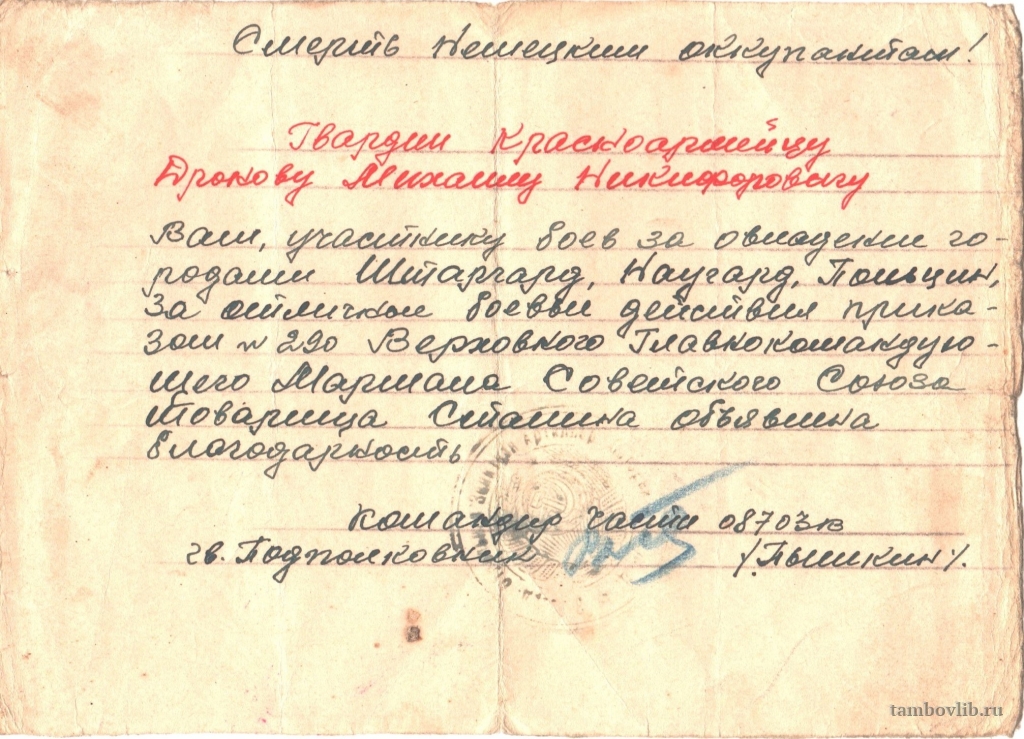 Смерть Немецким оккупантам!
Гвардии Красноармейцу
Дронову Михаилу Никифоровичу
Вам, участнику боев за овладении го-
родами Штаргард, Наугард, Польцин,
за отличные боевые действия прика-
зом № 290 Верховного Главнокомандую-
щего Маршала Советского Союза
товарища Сталина объявлена
благодарность
Командир части 08703
гв. Подполковник /Пышкин/.
tambovlib.ru